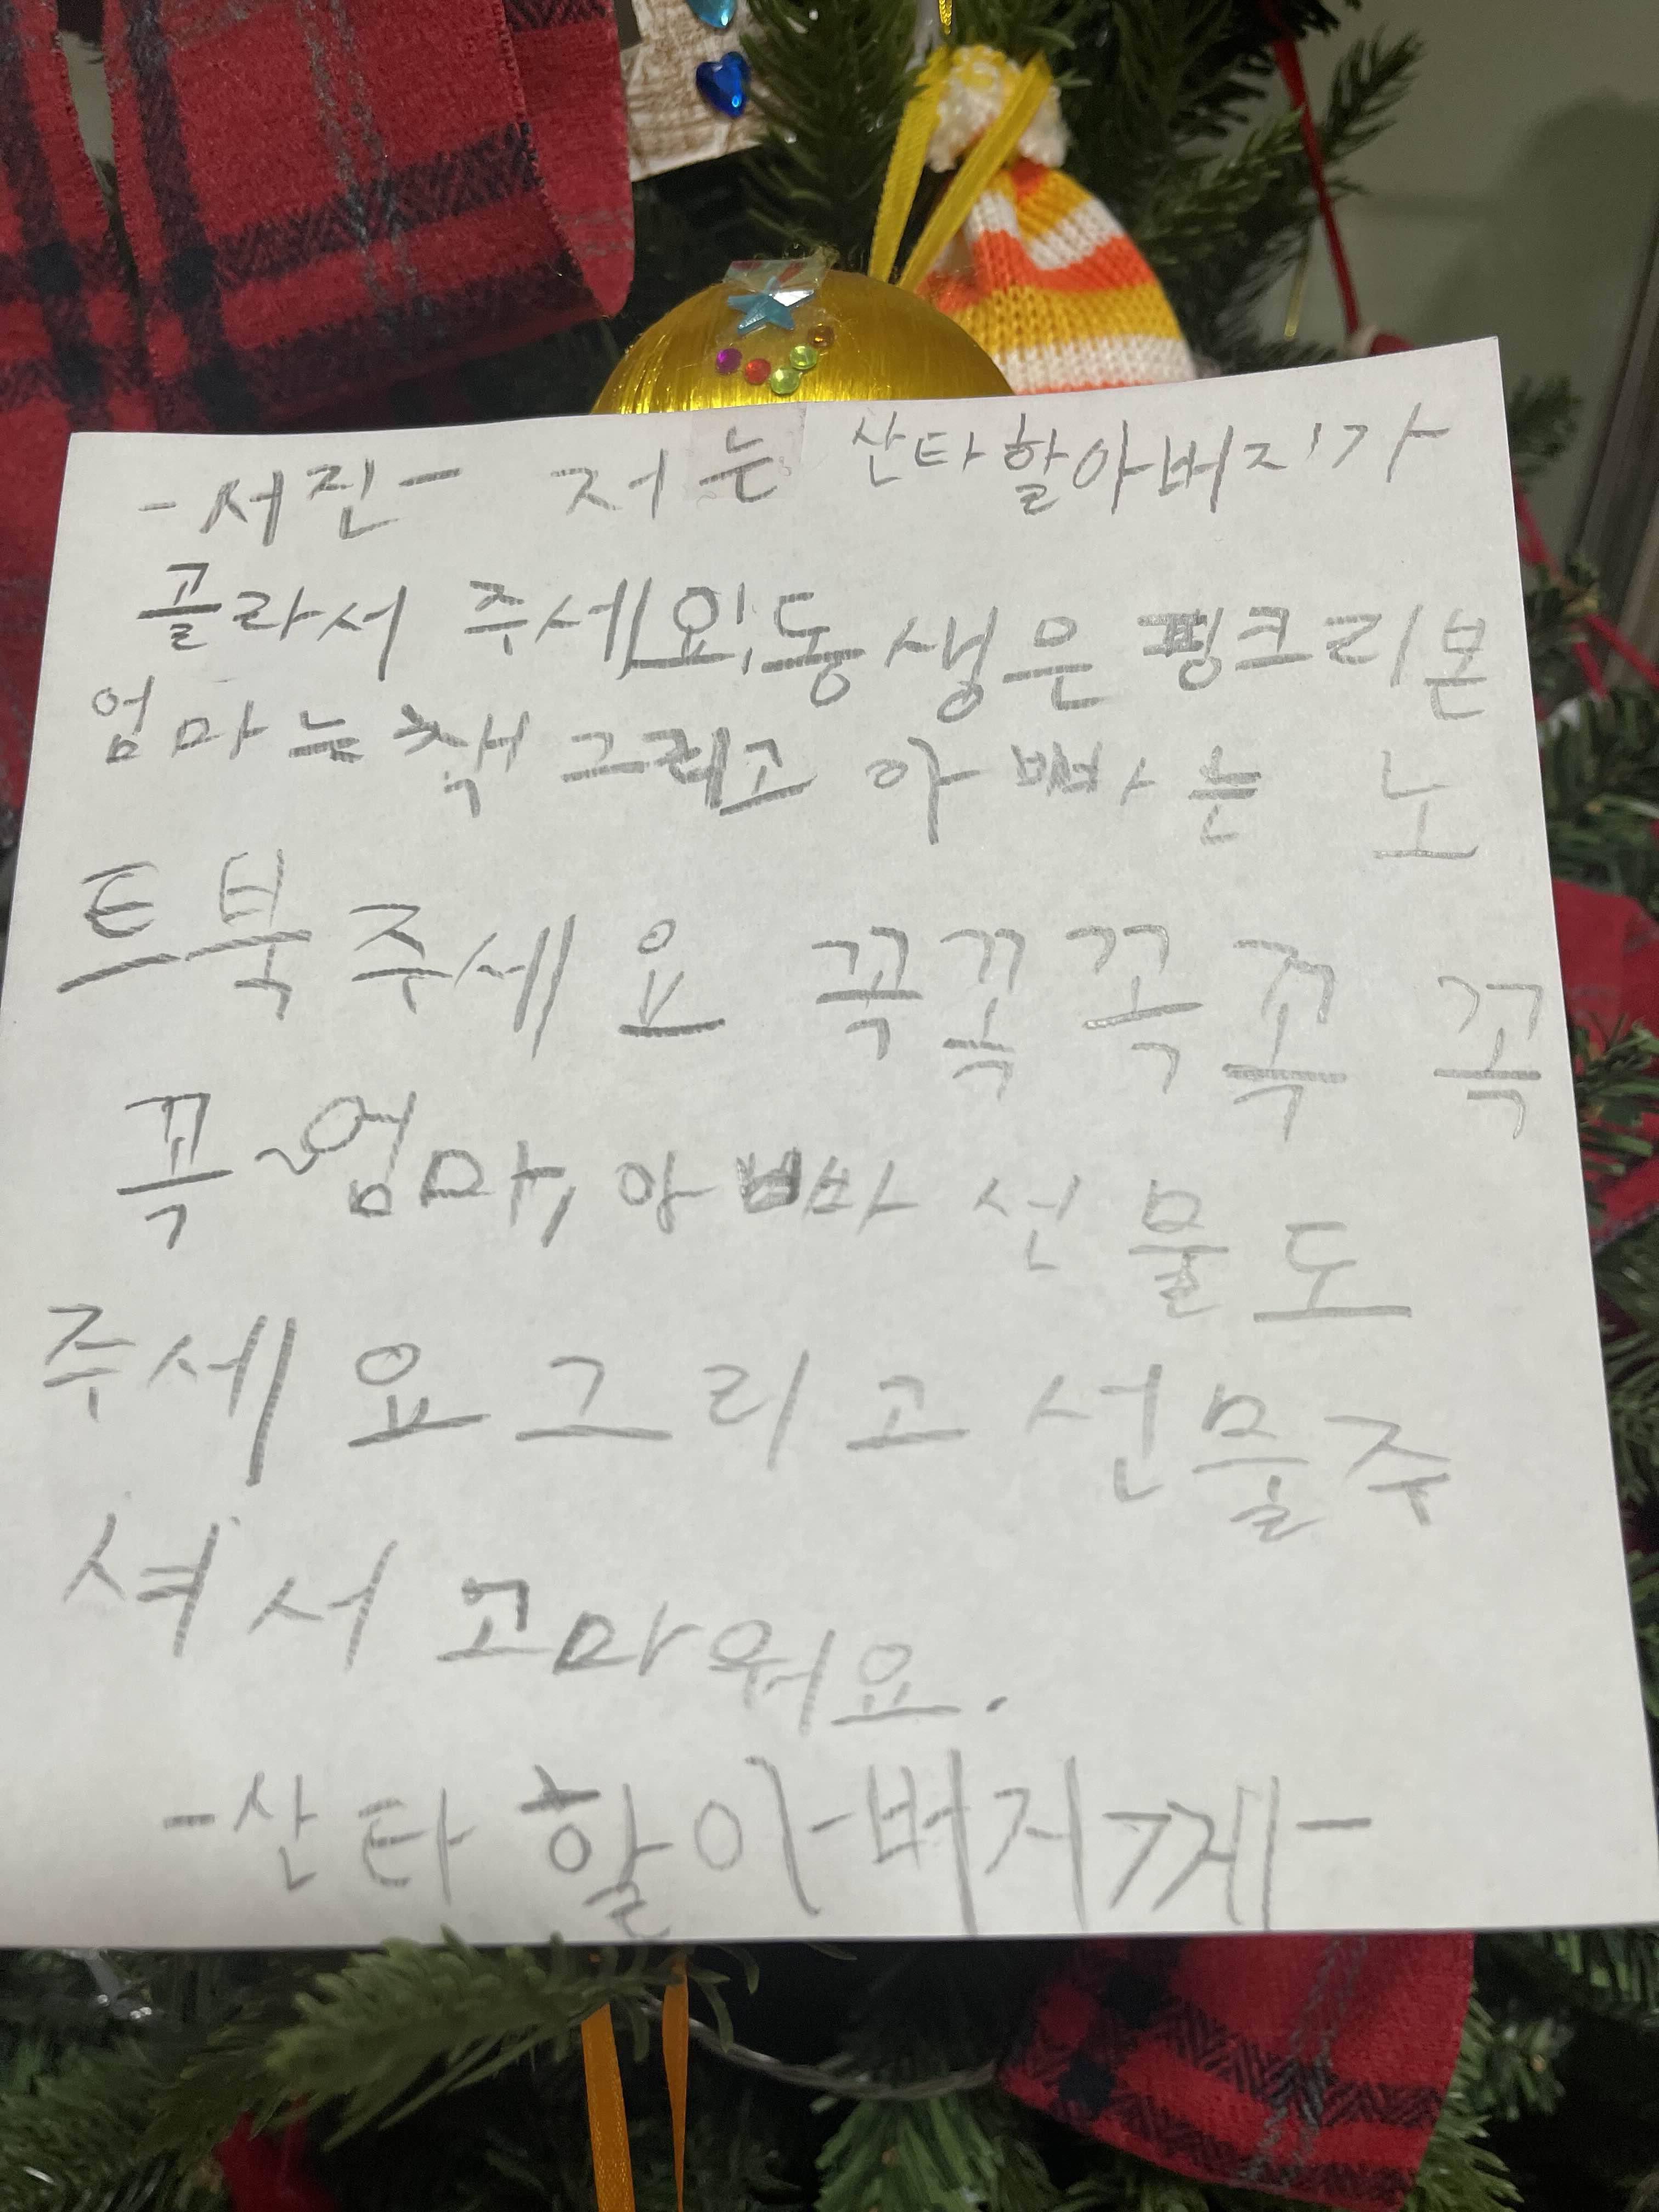 -서진- 저는 산타할아버지가
골라서 주세요! 동생은 핑크리본
엄마는 책 그리고 아빠는 노
트북주세요 꼭꼭꼭꼭 꼭
꼭~엄마, 아빠 선물도
주세요그리고선물주
셔서 고마워요.
-산타할아버지께-